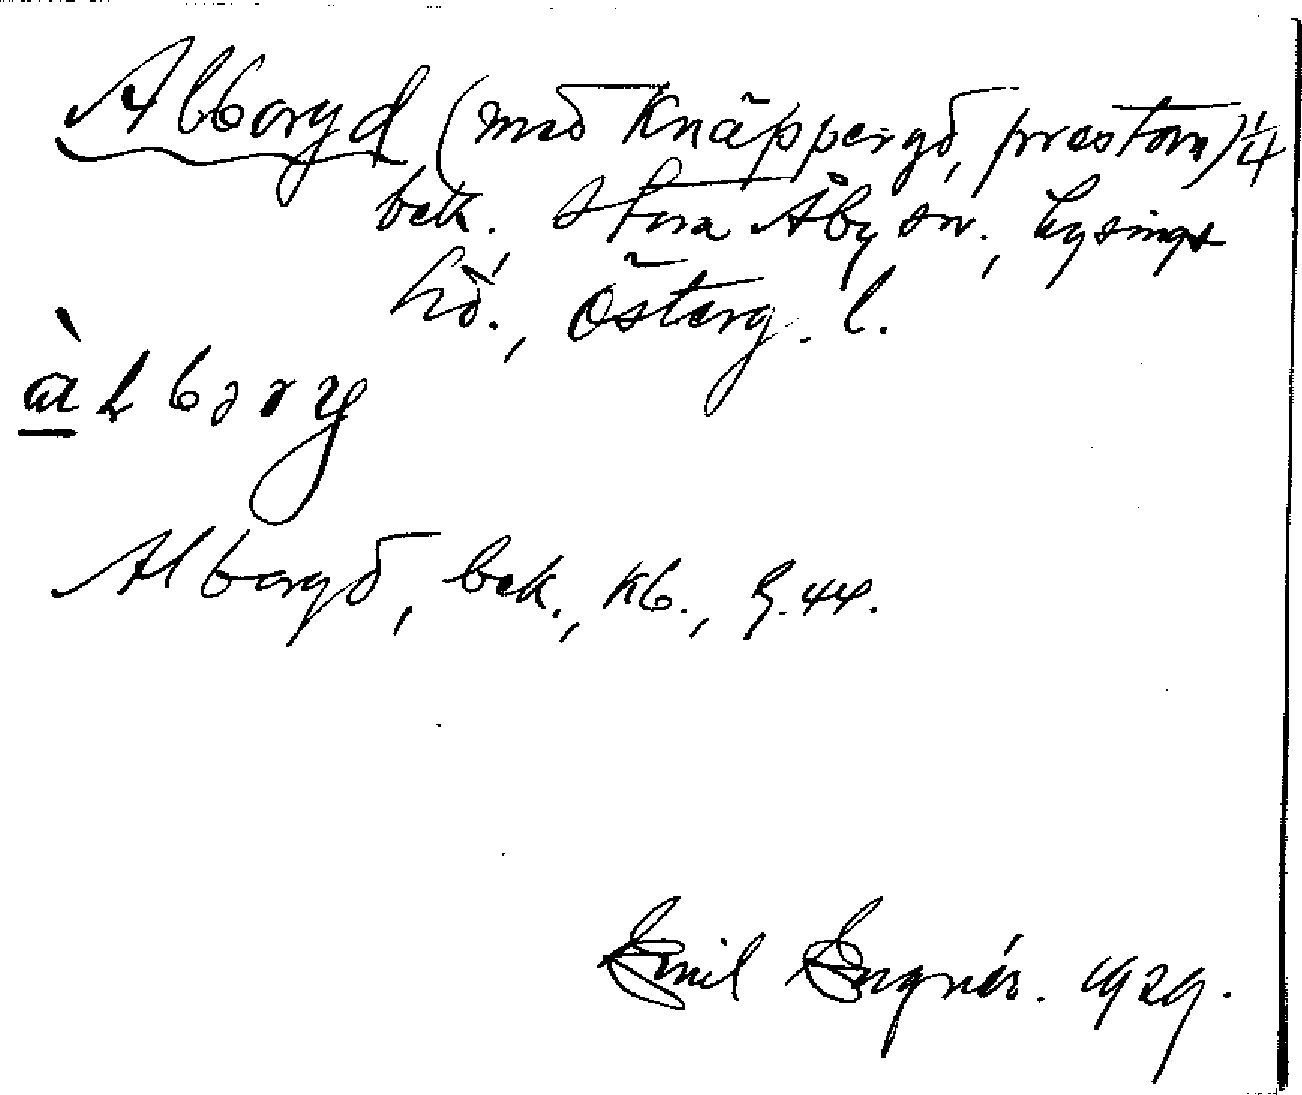 Alborgd (med Knäppergd, prestom) 1/4
bek. Stora Åby sn., Lysings
hd., Österg. l.
Alborgd, bek., kb., 44.
Emil Engnér. 1929.